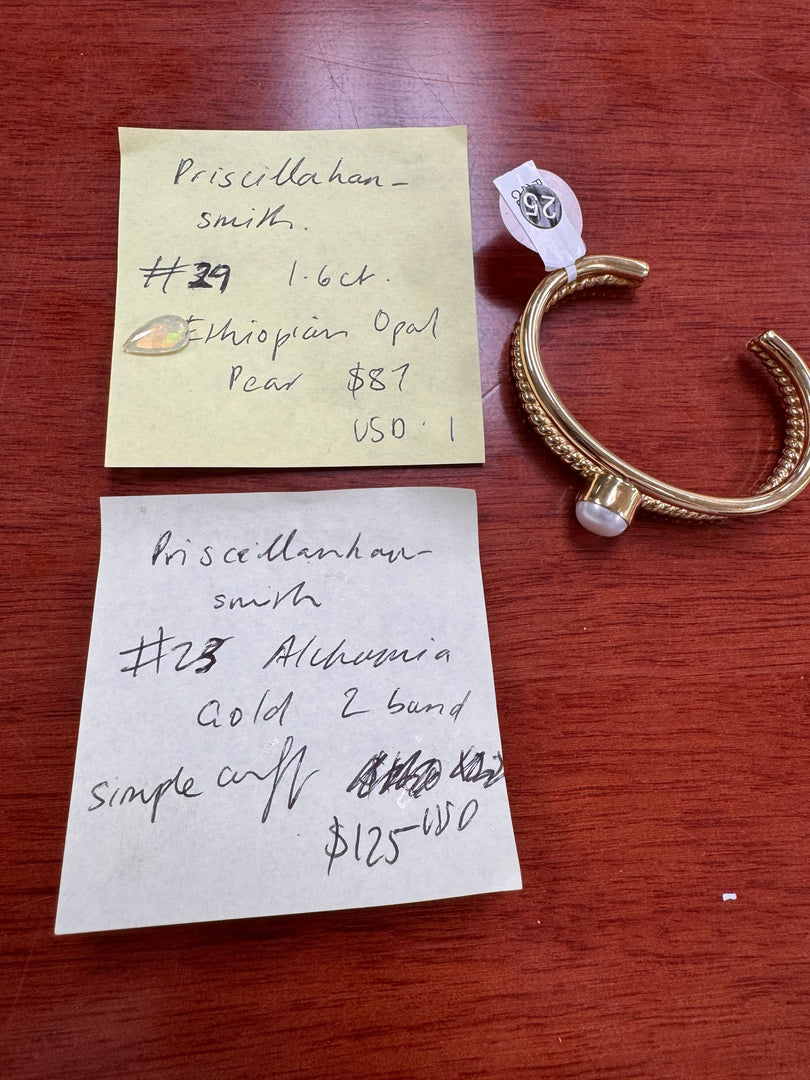 Priscillahan-
smith.
#29 1.6ct.
Ethiopian Opal
Pear $87
USD. 1
Priscillanhan-
smith
#23 Alchamia
Gold 2 band
simple cuff
$125 USD
25